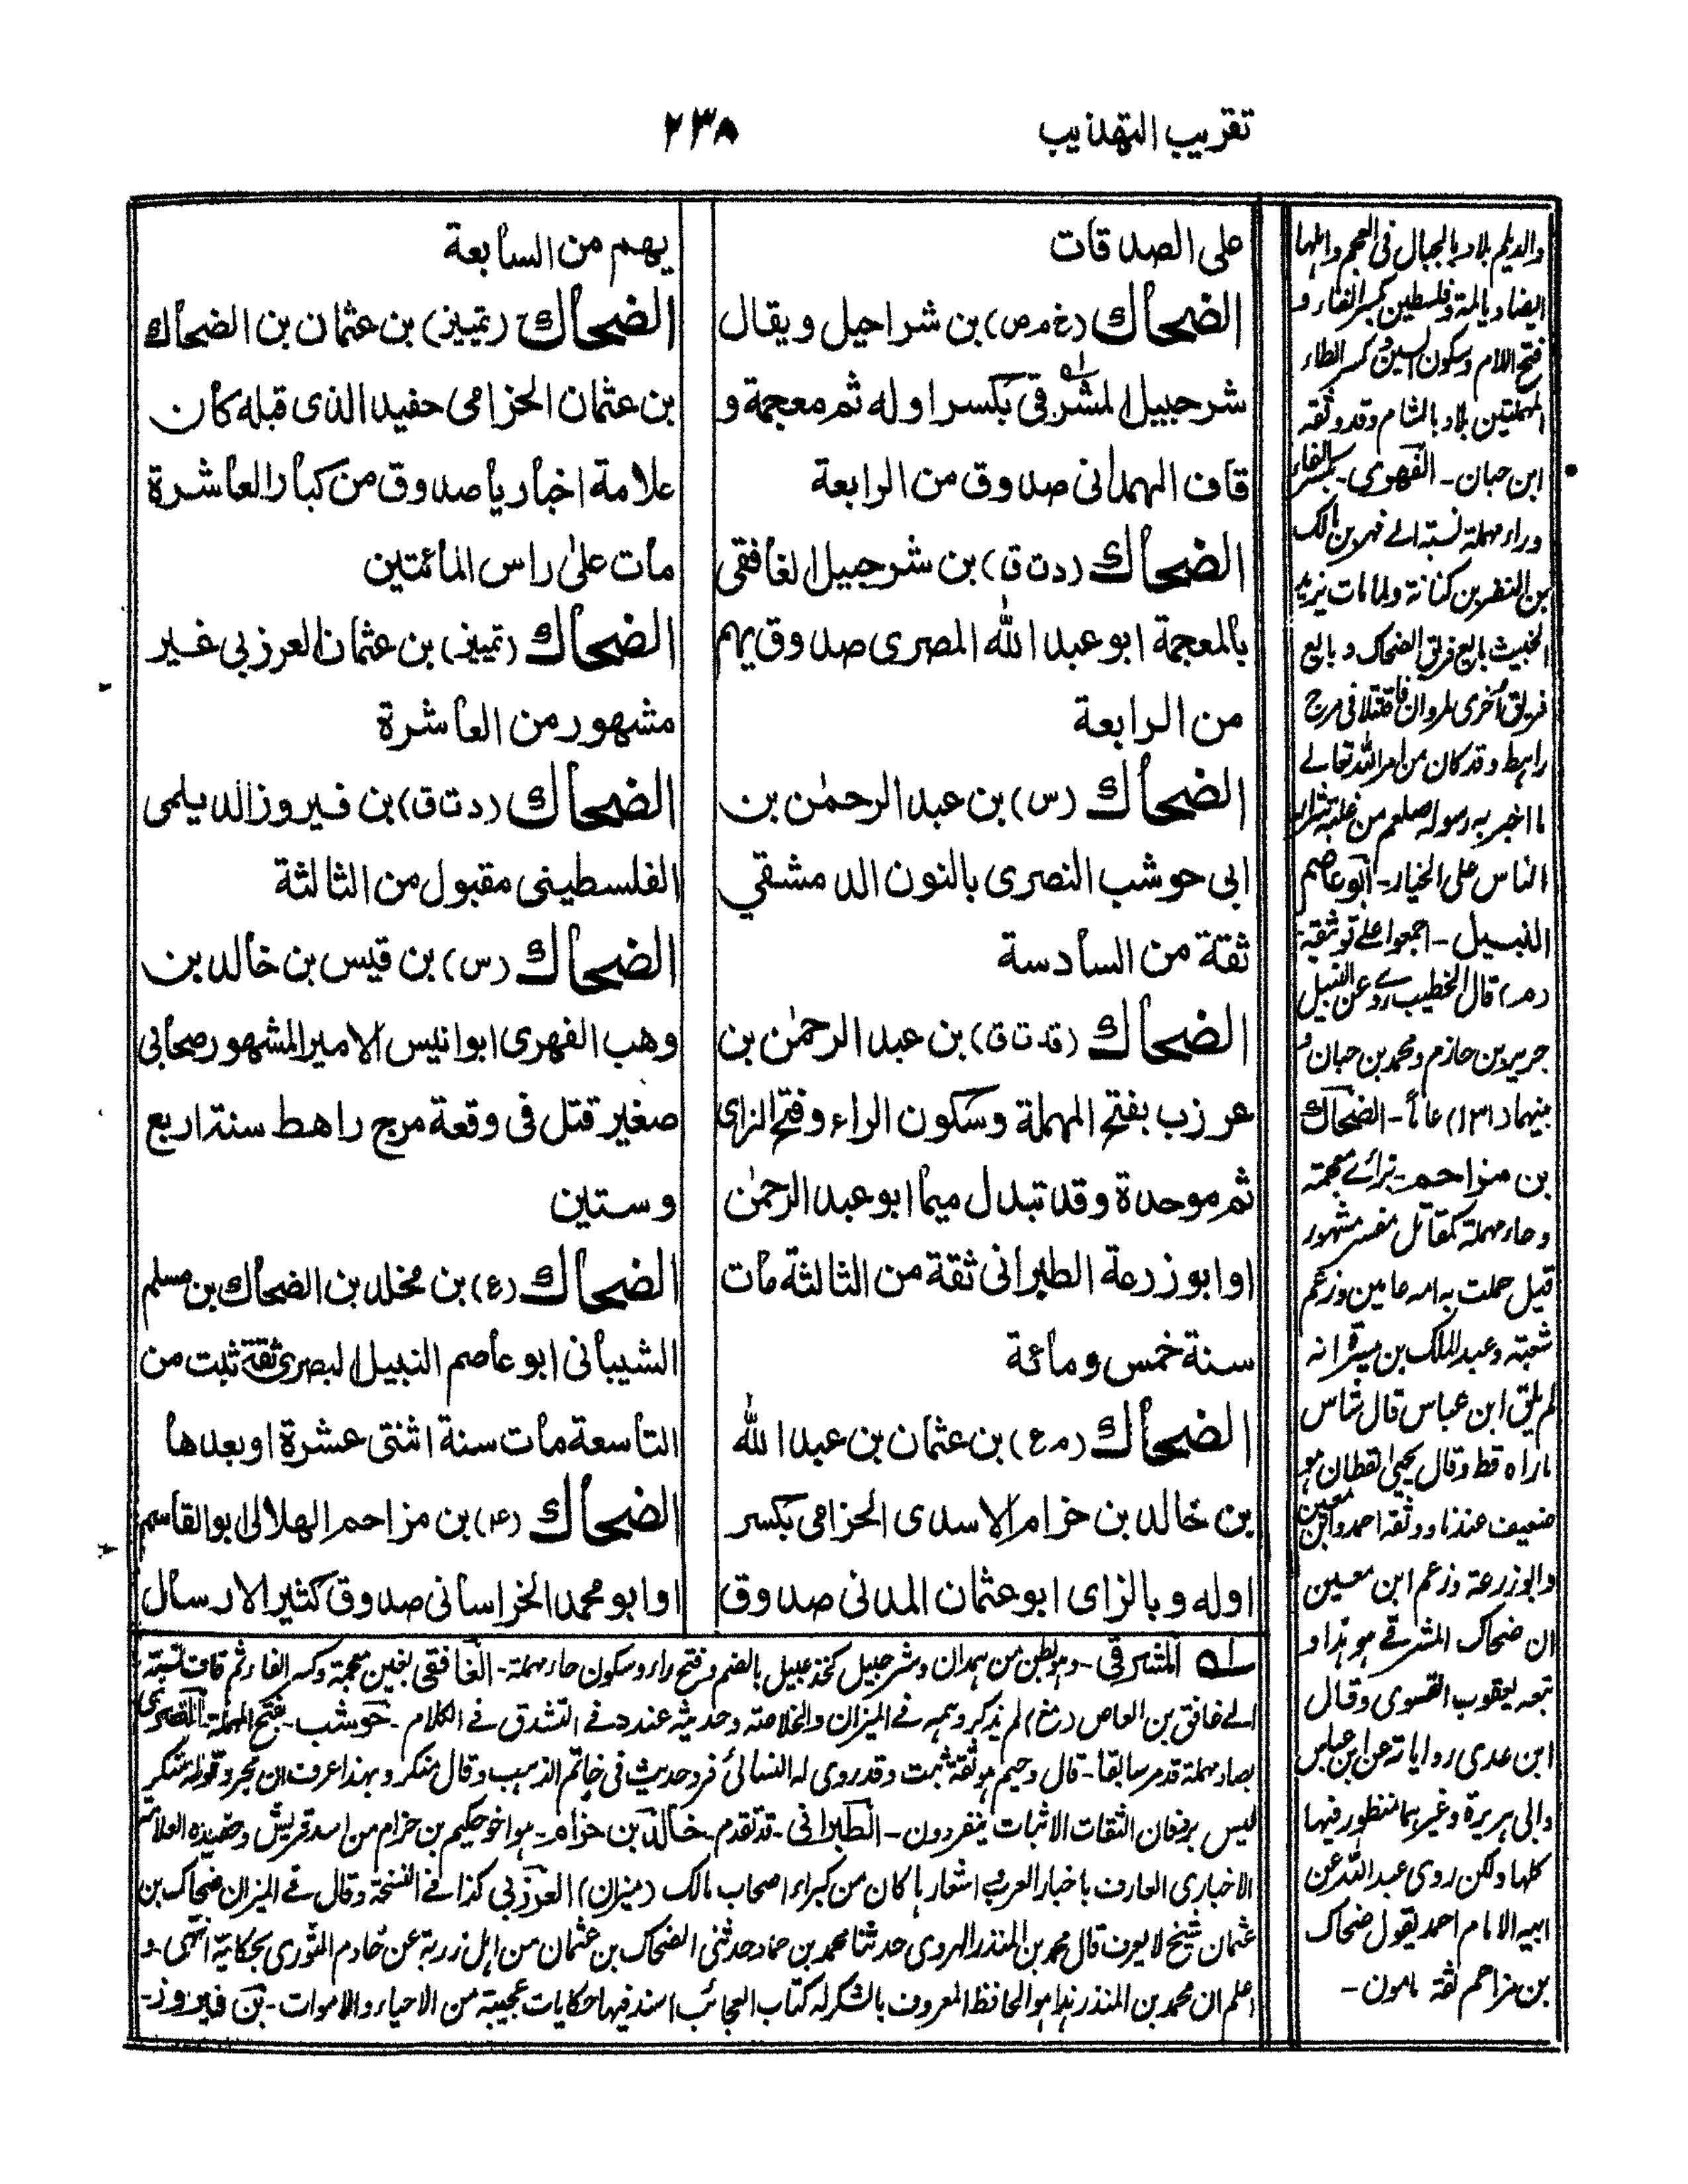 تقريب التهذيب
٢٣٨
على الصدقات
الضحاك (خ م ص) بن شراحيل ويقال
شرحبيل المشرقى بكسر اوله ثم معجمة و
قاف الهمدانى صدوق من الرابعة
الضحاك (د ت ق) بن شرحبيل الغافقى
بالمعجمة ابو عبد الله المصرى صدوق يهم
من الرابعة
الضحاك (س) بن عبد الرحمٰن بن
ابى حوشب النصرى بالنون الدمشقي
ثقة من السادسة
الضحاك (قد ت ق) بن عبد الرحمٰن بن
عرزب بفتح المهملة وسكون الراء وفتح الزاى
ثم موحدة وقد تبدل ميما ابو عبد الرحمٰن
او ابو زرعة الطبرانى ثقة من الثالثة مات
سنة خمس ومائة
الضحاك (م ع) بن عثمان بن عبد الله
بن خالد بن خزام الاسدى الحزامى بكسر
اوله وبالزاى ابو عثمان المدنى صدوق
يهم من السابعة
الضحاك (تمييز) بن عثمان بن الضحاك
بن عثمان الحزامى حفيد الذى قبله كان
علامة اخباريا صدوق من كبار العاشرة
مات علىٰ راس المائتين
الضحاك (تمييز) بن عثمان العرزبى غير
مشهور من العاشرة
الضحاك (د ت ق) بن فيروز الديلمى
الفلسطينى مقبول من الثالثة
الضحاك (س) بن قيس بن خالد بن
وهب الفهرى ابو انيس الامير المشهور صحابى
صغير قتل فى وقعة مرج راهط سنة اربع
وستين
الضحاك (ع) بن مخلد بن الضحاك بن مسلم
الشيبانى ابو عاصم النبيل البصرى ثقة ثبت من
التاسعة مات سنة اثنتى عشرة او بعدها
الضحاك (عه) بن مزاحم الهلالى ابو القاسم
او ابو محمد الخراسانى صدوق كثير الارسال
والديلم بلاد بالجبال فى العجم واہلہا
ايضا ديالمة وفلسطين بكسر الفاء و
فتح اللام وسكون السين وكسر الطاء
المہملتين بلاد بالشام وقد وثقہ
ابن حبان - الفهرى - بكسر الفاء
وراء مہملة نسبة الے فہر بن مالك
بن النضر بن كنانة ولما مات يزيد
الخبيث بايع فريق الضحاك وبايع
فريق اخرى لمروان فاقتتلا فى مرج
راہط وقد كان من امر الله تعالے
ما اخبر بہ رسولہ صلعم من غلبة شرار
الناس على الخيار - ابو عاصم
النبيل - اجمعوا علے توثيقہ
(مه) قال الخطيب روے عن النبيل
جرير بن حازم ومحمد بن حبان و
بينهما (١٣١) عاماً - الضحاك
بن مزاحم - بزائے معجمة
وحاء مہملة كمقاتل مفسر مشہور
قيل حملت بہ امہ عامين وزعم
شعبة وعبد الملك بن ميسرة انہ
لم يلق ابن عباس قال مشاس
ما راه قط وقال يحيى القطان ہو
ضعيف عندنا ووثقہ احمد وابن معين
وابو زرعة وزعم ابن معين
ان ضحاك المشرقے ہو ہذا و
تبعہ يعقوب الفسوى وقال
ابن عدى رواياتہ عن ابن عباس
وابى ہريرة وغيرہما ففيہا نظر
كلہا ولكن روى عبد الله عن
ابيہ الامام احمد يقول ضحاك
بن مزاحم ثقة مامون -
لہ المشرقى - وہو بطن من ہمدان وشرحبيل كخذعبيل بالضم وفتح راء وسكون حاء مہملة - الغافقى بغين معجمة وكسر الفاء ثم قاف نسبة
الے غافق بن العاص (مغ) لم يذكر وہمہ فے الميزان والخلاصة وحديثہ عند د فے التشدق فے الكلام - حوشب - بفتح المہملة - النصرى
بصاد مہملة قد مر سابقا - قال دحيم ہو ثقة ثبت وقد روى لہ النسائى فرد حديث فى خاتم الذہب وقال منكر وبہذا عرفت ان مجرد قولہ منكر
ليس برفعان الثقات الاثبات ينفردون - الطبرانى - قد تقدم - خالد بن خزام - ہو اخو حكيم بن حزام من اسد قريش وحفيدہ العلامة
الاخبارى العارف باخبار العرب واشعارہا كان من كبراء اصحاب مالك (ميزان) العرزبى كذا فے النسخة وقال فے الميزان ضحاك بن
عثمان شيخ لا يعرف قال محمد بن المنذر الہروى حدثنا محمد بن حماد حدثنى الضحاك بن عثمان من اہل زربة عن خادم الثورى بحكاية انتہى - و
اعلم ان محمد بن المنذر ہذا ہو الحافظ المعروف بالشكر لہ كتاب العجائب اسند فيہا حكايات عجيبة من الاحياء والاموات - بن فيروز -